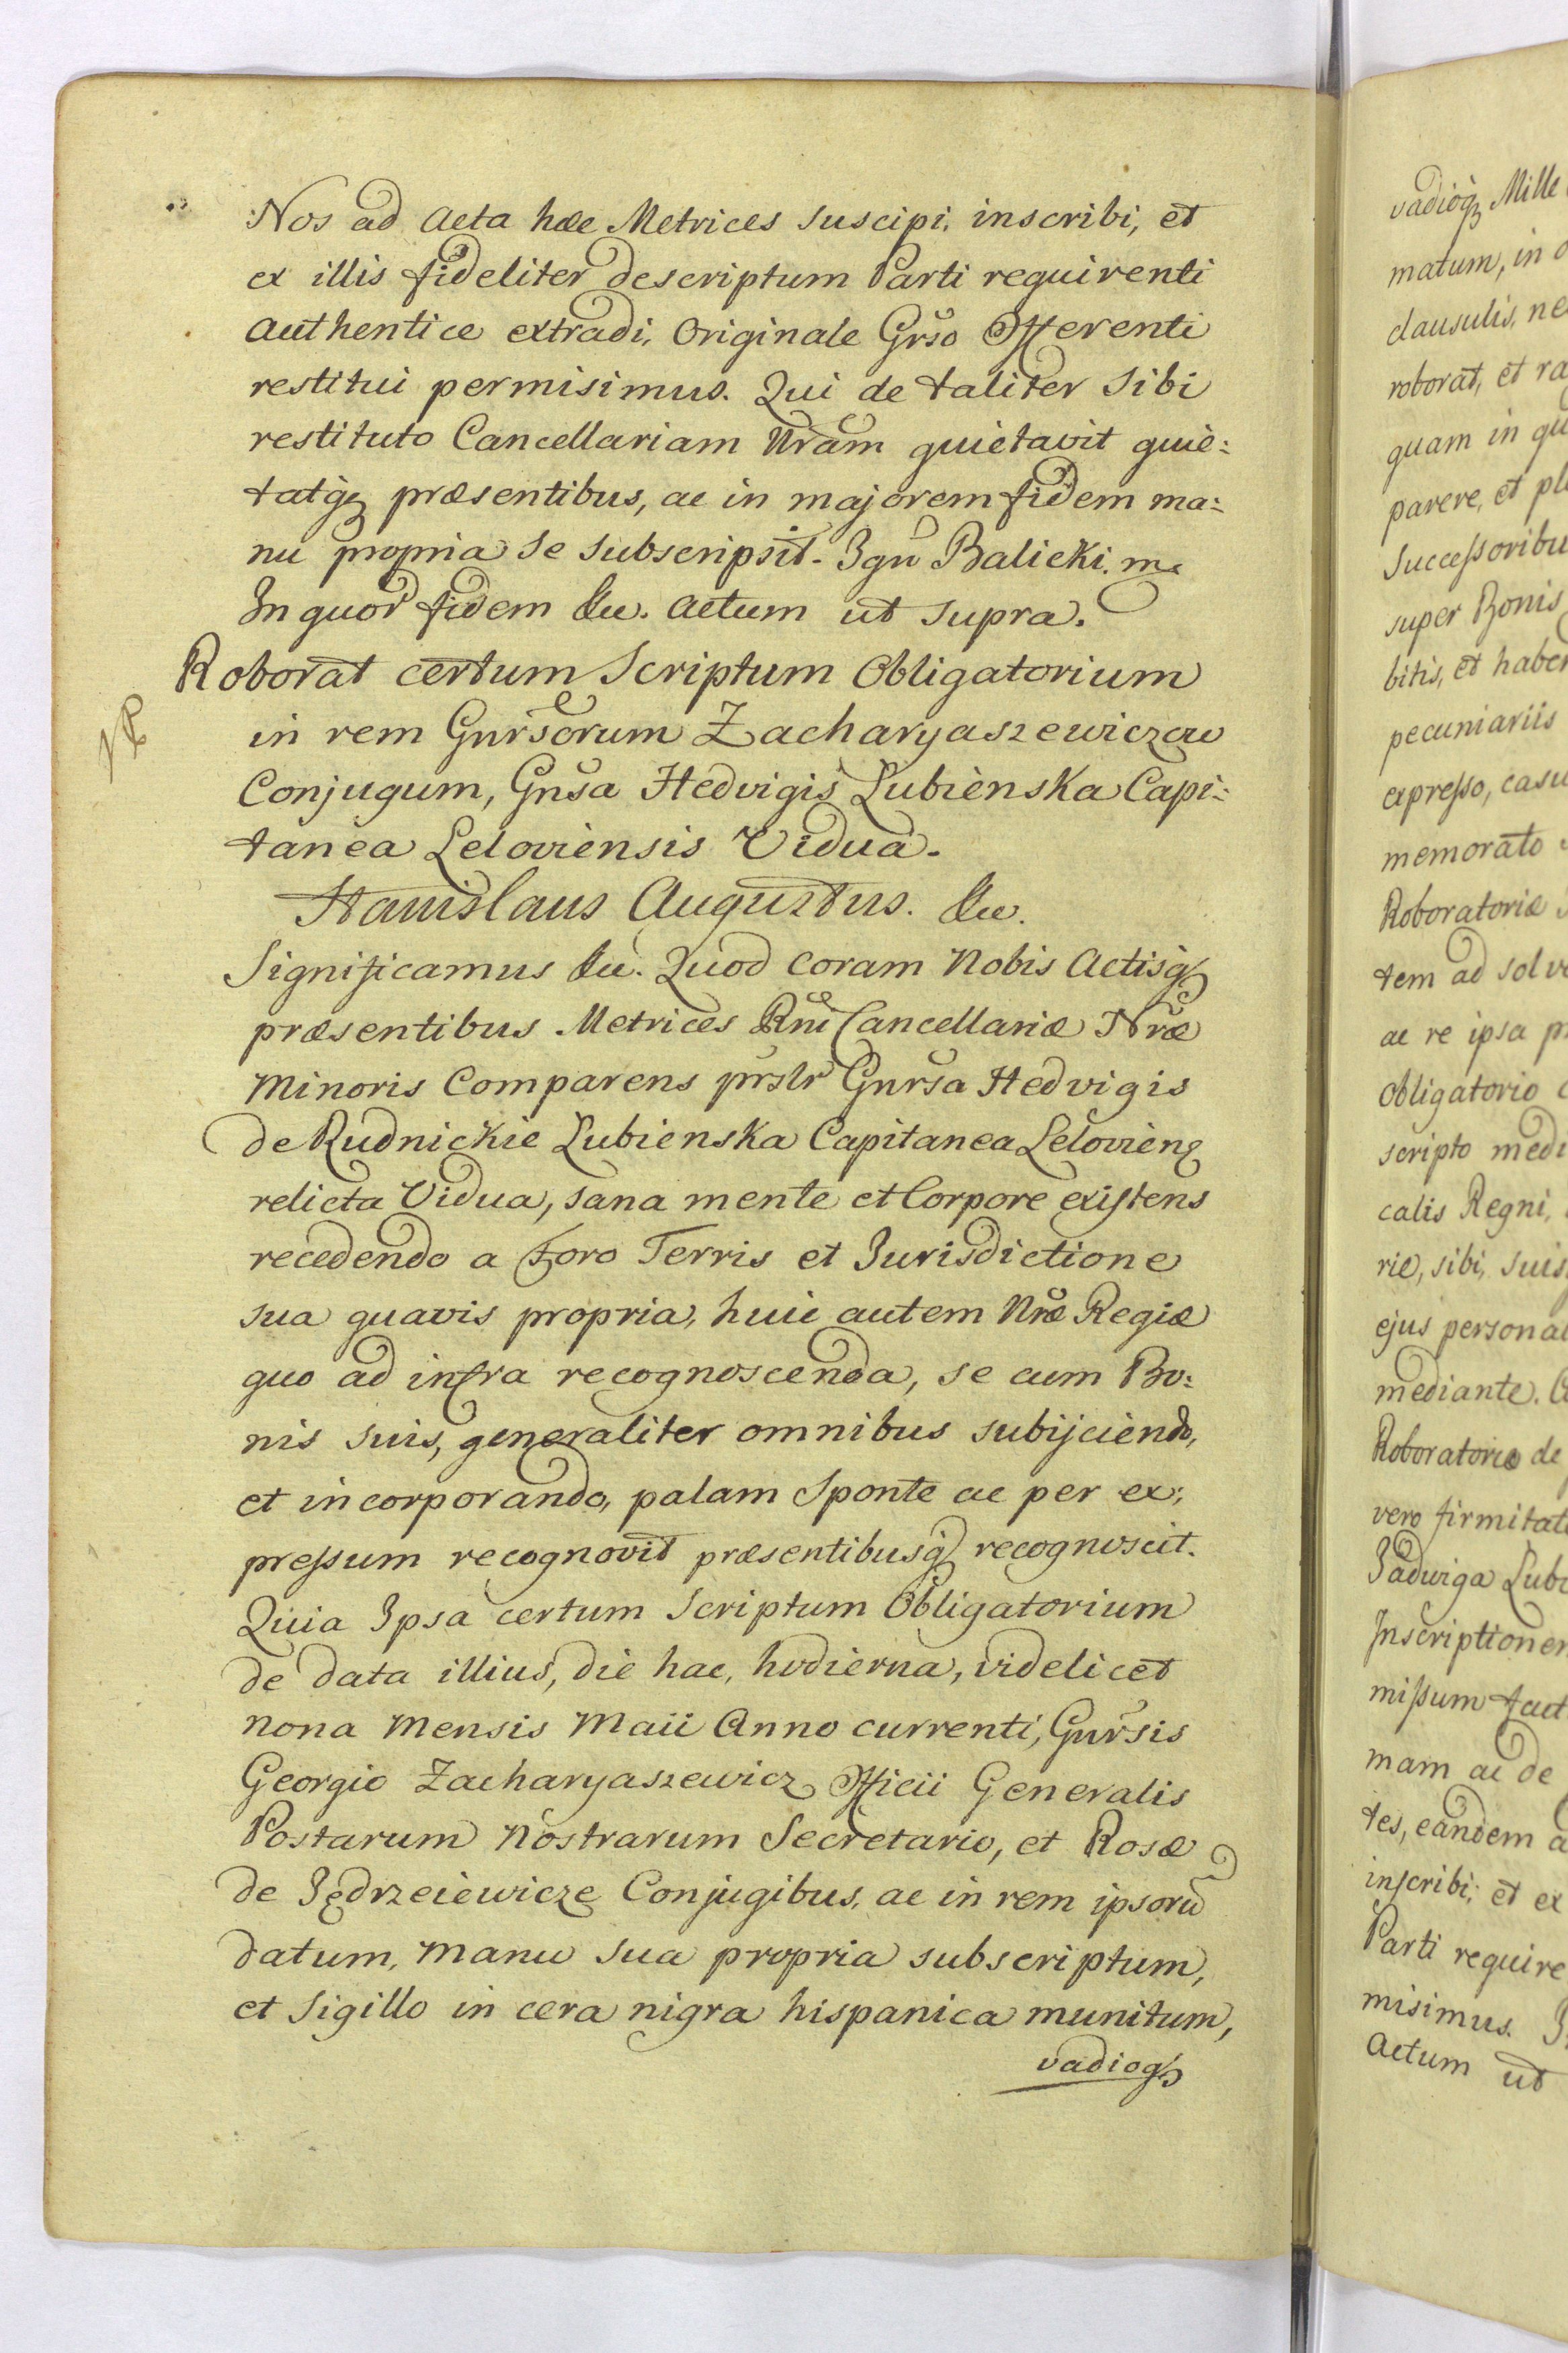 Nos ad Acta hæc Metrices suscipi, inscribi, et
ex illis fideliter descriptum Parti requirenti
authentice extradi, Originale Grso Offerenti
restitui permisimus. Qui de taliter Sibi
restituto Cancellariam Nram quietavit quie:
tatq præsentibus, ac in majorem fidem ma:
nu propria se subscripsit. Ign Balicki. m
In quor fidem &c. Actum ut supra.
Roborat certum Scriptum Obligatorium
in rem Gnrsorum Zacharyaszewiczow
Conjugum, Gnsa Hedvigis Lubienska Capi:
tanea Leloviensis Vidua.
NR
Stanislaus Augustus. &c.
Significamus &c. Quod coram Nobis Actisq
præsentibus Metrices Rni Cancellariæ Nræ
Minoris Comparens prslr Gnrsa Hedvigis
de Rudnickie Lubienska Capitanea Leloviens
relicta Vidua, sana mente et Corpore existens
recedendo a Foro Terris et Jurisdictione
sua quavis propria, huic autem Nræ Regiæ
quo ad infra recognoscenda, se cum Bo:
nis suis, generaliter omnibus subijciendo,
et incorporando, palam Sponte ac per ex:
pressum recognovit præsentibusq recognoscit.
Quia Ipsa certum Scriptum Obligatorium
de data illius, die hac, hodierna, videlicet
nona Mensis Maii Anno currenti, Gnrsis
Georgio Zacharyaszewicz Officii Generalis
Postarum Nostrarum Secretario, et Rosæ
de Jędrzeiewicze Conjugibus, ac in rem ipsorũ
datum, manu sua propria subscriptum,
et Sigillo in cera nigra hispanica munitum,
vadioq
vadioq Mille
matum, in
clausulis, ne
roborat, et ra
quam in qu
parere, et pl
Successoribu
super Bonis
bitis, et haben
pecuniariis
expresso, casu
memorato
Roboratoriæ
tem ad solv
ac re ipsa p
Obligatorio
scripto medi
calis Regni,
riæ, sibi, suis
ejus personal
mediante.
Roboratoriæ de
vero firmitat
Jadwiga Lubi
Inscriptionem
missum fact
mam ac de
tes, eandem a
inscribi, et ex
Parti require
misimus.
Actum ut